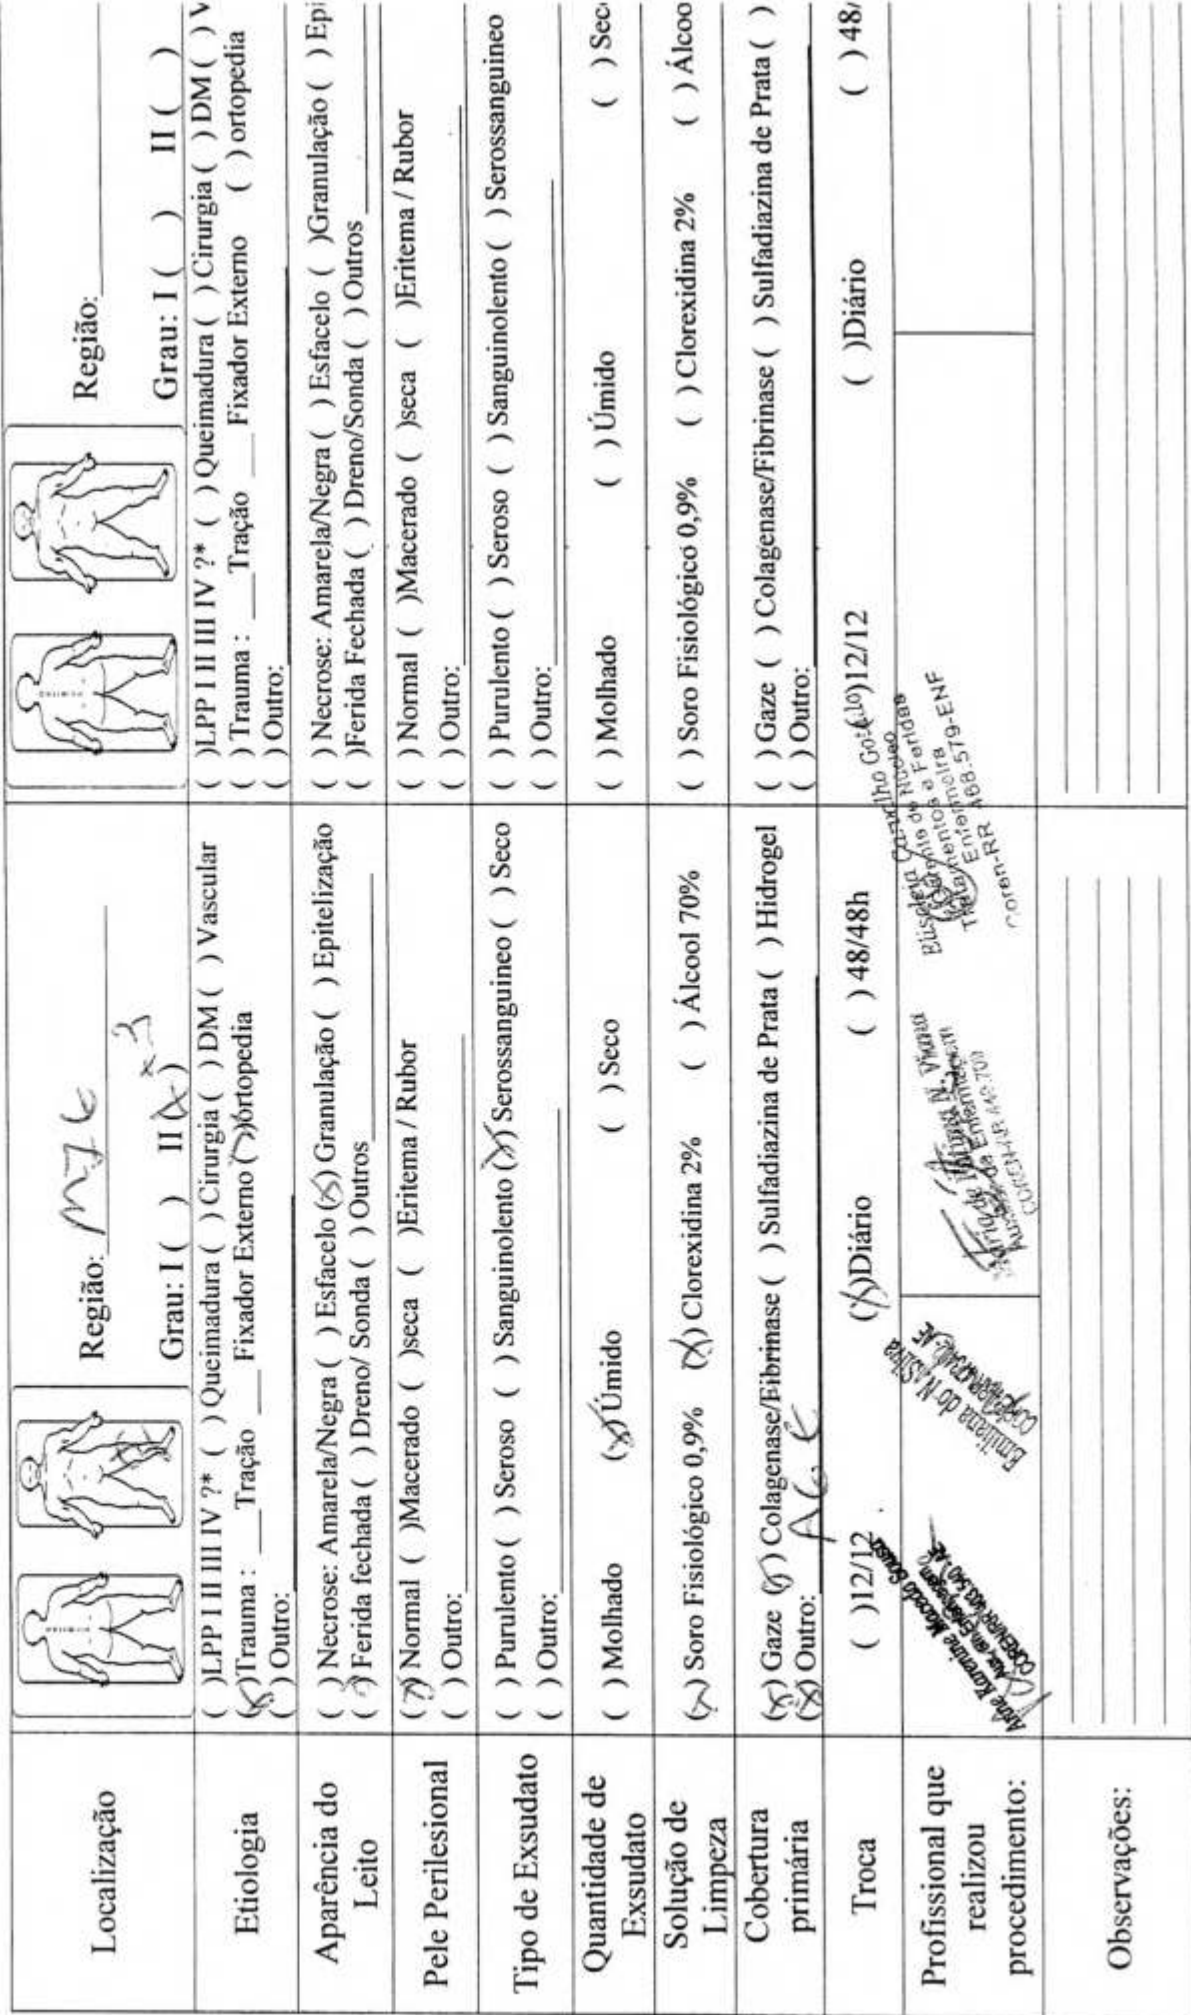 Localização
Região: MIE
Grau: I ( ) II (x) x3
Região:
Grau: I ( ) II ( )
Etiologia
( )LPP I II III IV ?* ( ) Queimadura ( ) Cirurgia ( ) DM ( ) Vascular
(x)Trauma : ___Tração ___Fixador Externo (x)ortopedia
( ) Outro:
( )LPP I II III IV ?* ( ) Queimadura ( ) Cirurgia ( ) DM ( ) V
( ) Trauma : ___Tração ___Fixador Externo ( ) ortopedia
( ) Outro:
Aparência do
Leito
( ) Necrose: Amarela/Negra ( ) Esfacelo (x) Granulação ( ) Epitelização
( ) Ferida fechada ( ) Dreno/ Sonda ( ) Outros
( ) Necrose: Amarela/Negra ( ) Esfacelo ( )Granulação ( ) Epi
( )Ferida Fechada ( ) Dreno/Sonda ( ) Outros
Pele Perilesional
(x) Normal ( )Macerado ( )seca ( )Eritema / Rubor
( ) Outro:
( ) Normal ( )Macerado ( )seca ( )Eritema / Rubor
( ) Outro:
Tipo de Exsudato
( ) Purulento ( ) Seroso ( ) Sanguinolento (x) Serossanguineo ( ) Seco
( ) Outro:
( ) Purulento ( ) Seroso ( ) Sanguinolento ( ) Serossanguineo
( ) Outro:
Quantidade de
Exsudato
( ) Molhado (x)Úmido ( ) Seco
( ) Molhado ( ) Úmido ( ) Sec
Solução de
Limpeza
(x) Soro Fisiológico 0,9% (x) Clorexidina 2% ( ) Álcool 70%
( ) Soro Fisiológico 0,9% ( ) Clorexidina 2% ( ) Álcoo
Cobertura
primária
(x) Gaze (x) Colagenase/Fibrinase ( ) Sulfadiazina de Prata ( ) Hidrogel
(x) Outro: AGE
( ) Gaze ( ) Colagenase/Fibrinase ( ) Sulfadiazina de Prata ( )
( ) Outro:
Troca
( )12/12 (x)Diário ( ) 48/48h
( )12/12 ( )Diário ( ) 48/
Profissional que
realizou
procedimento:
Anne Karenine Macedo Sousa
Aux. em Enfermagem
Emiliana do N. A. Silva
Auxiliar de Enfermagem
Núcleo
Tratamentos e Feridas
Enfermeira
Coren-RR 468.579-ENF
Observações: